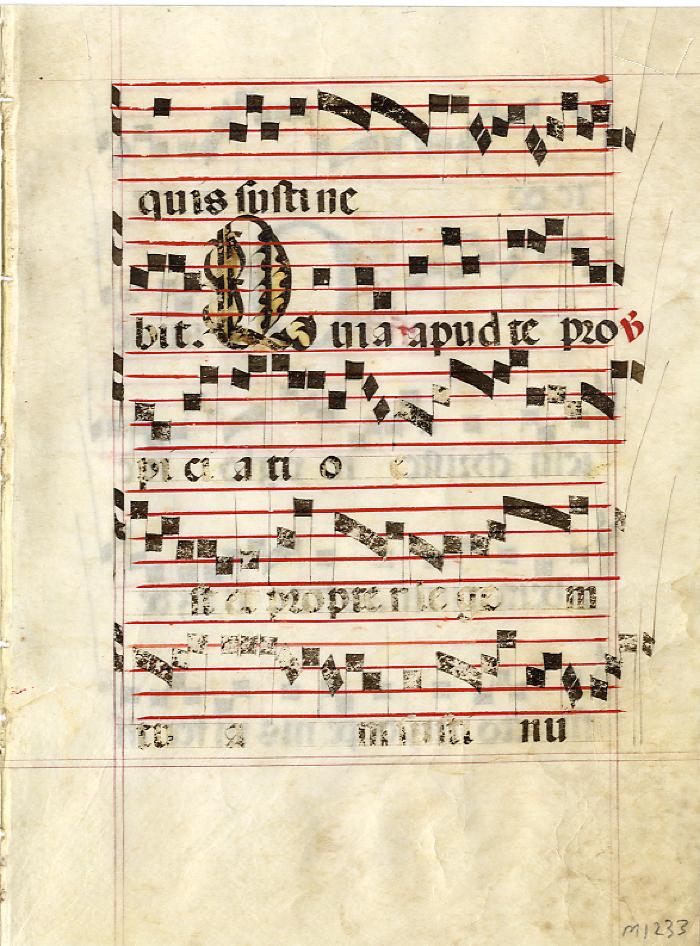 quis sustine
bit. Quia apud te pro ℣
piciatio e
st et propter lege m
tu a m susti nu
M1233